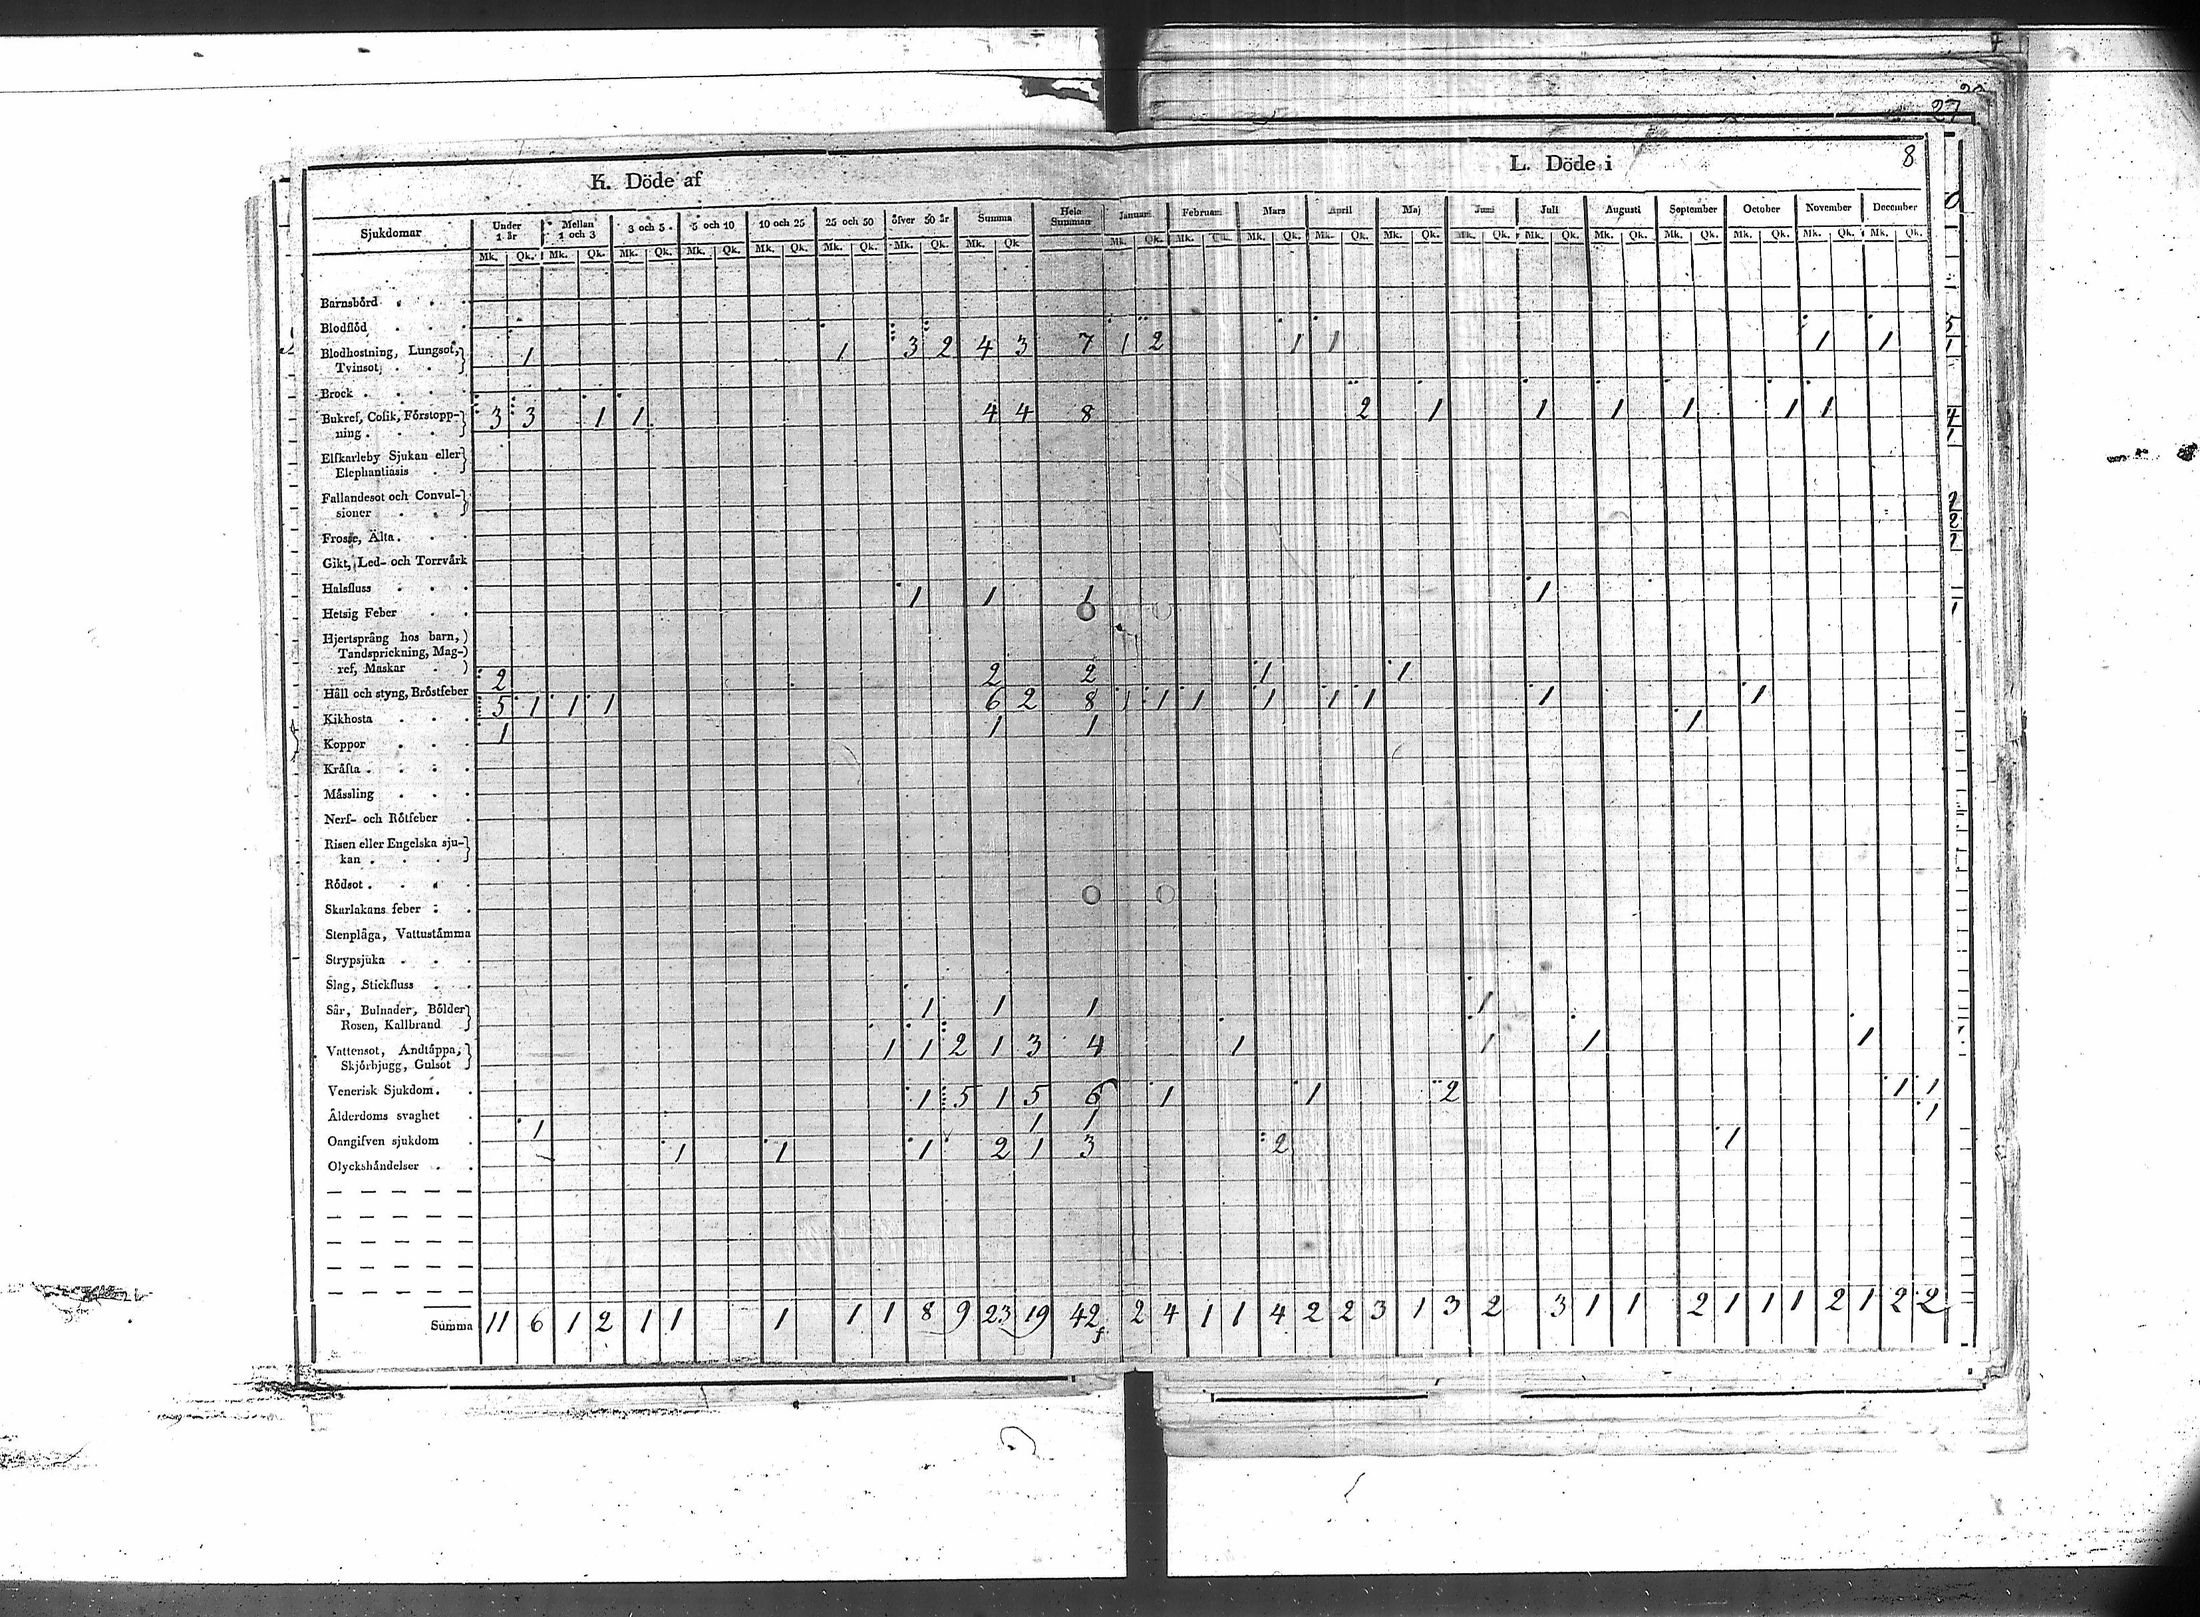 27
8
K. Döde af
L. Döde i
Sjukdomar Under 1 år Mellan 1 och 3 3 och 5 5 och 10 10 och 25 25 och 50 öfver 50 år Summa Hela Summan Januari Februari Mars April Maj Juni Juli Augusti September October November December
Mk. Qk. Mk. Qk. Mk. Qk. Mk. Qk. Mk. Qk. Mk. Qk. Mk. Qk. Mk. Qk Mk. Qk. Mk. Qk. Mk. Qk. Mk. Qk. Mk. Qk. Mk. Qk. Mk. Qk. Mk. Qk. Mk. Qk. Mk. Qk. Mk. Qk. Mk. Qk.
Barnsbörd
Blodflöd
Blodhostning, Lungsot, 1 1 3 2 4 3 7 1 2 1 1 1 1
Tvinsot
Brock
Bukref, Colik, Förstopp- 3 3 1 1 4 4 8 2 1 1 1 1 1 1
ning
Elfkarleby Sjukan eller
Elephantiasis
Fallandesot och Convul-
sioner
Frossa, Älta
Gikt, Led- och Torrvärk
Halsfluss 1 1 1 1
Hetsig Feber
Hjertsprång hos barn,
Tandsprickning, Mag-
ref, Maskar 2 2 2 1 1
Håll och styng, Bröstfeber 5 1 1 1 6 2 8 1 1 1 1 1 1 1 1
Kikhosta 1 1 1 1
Koppor
Kräfta
Mässling
Nerf- och Rötfeber
Risen eller Engelska sju-
kan
Rödsot
Skarlakans feber
Stenplåga, Vattustämma
Strypsjuka
Slag, Stickfluss
Sår, Bulnader, Bölder 1 1 1 1
Rosen, Kallbrand
Vattensot, Andtäppa, 1 1 2 1 3 4 1 1 1 1
Skjörbjugg, Gulsot
Venerisk Sjukdom 1 5 1 5 6 1 1 2 1 1
Ålderdoms svaghet 1 1 1 1
Oangifven sjukdom 1 1 1 2 1 3 2 1
Olyckshändelser
Summa 11 6 1 2 1 1 1 1 1 8 9 23 19 42 2 4 1 1 4 2 2 3 1 3 2 3 1 1 2 1 1 1 2 1 2 2